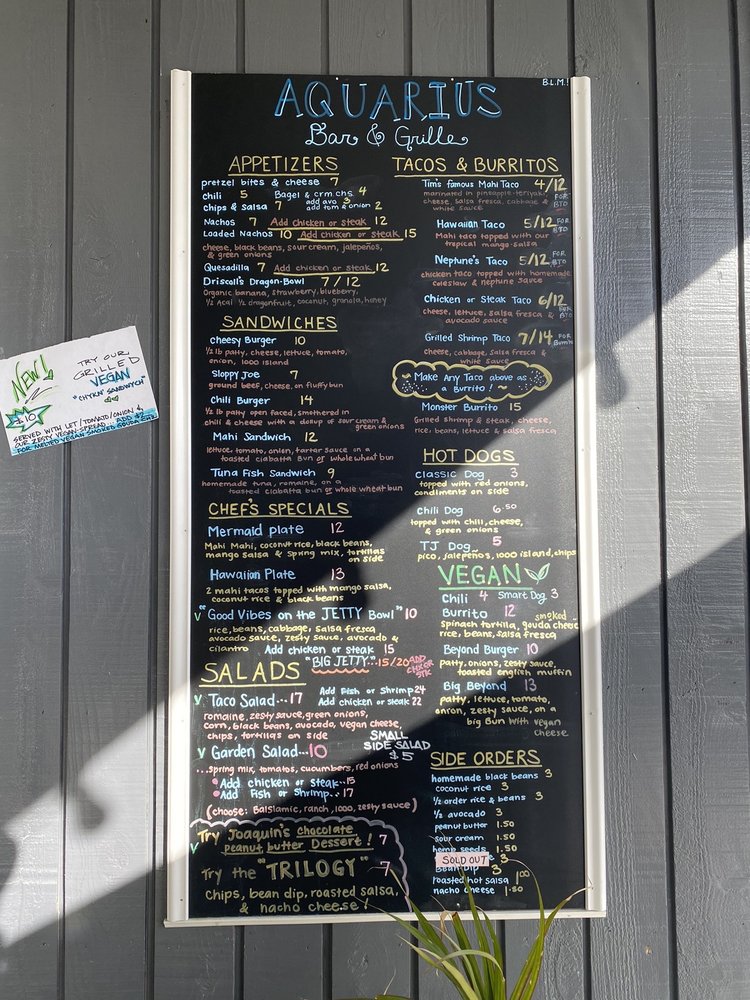 B.L.M.!
AQUARIUS
Bar & Grille
APPETIZERS
pretzel bites & cheese 7
chili 5 Bagel & crm chs 4
add avo 3
chips & salsa 7 add tom & onion 2
Nachos 7 Add chicken or steak 12
Loaded Nachos 10 Add chicken or steak 15
cheese, black beans, sour cream, jalepeños,
& green onions
Quesadilla 7 Add chicken or steak 12
Driscoll's Dragon-Bowl 7/12
Organic banana, strawberry, blueberry,
1/2 Acai 1/2 dragonfruit, coconut, granola, honey
SANDWICHES
Cheesy Burger 10
1/2 lb patty, cheese, lettuce, tomato,
onion, 1000 island
Sloppy Joe 7
ground beef, cheese, on fluffy bun
Chili Burger 14
1/2 lb patty open faced, smothered in
chili & cheese with a dollup of sour cream &
green onions
Mahi Sandwich 12
lettuce, tomato, onion, tartar sauce on a
toasted ciabatta bun or whole wheat bun
Tuna Fish Sandwich 9
homemade tuna, romaine, on a
toasted ciabatta bun or whole wheat bun
CHEF'S SPECIALS
Mermaid plate 12
Mahi Mahi, coconut rice, black beans,
mango salsa & spring mix, tortillas
on side
Hawaiian Plate 13
2 mahi tacos topped with mango salsa,
coconut rice & black beans
V "Good Vibes on the JETTY Bowl" 10
rice, beans, cabbage, salsa fresca
avocado sauce, zesty sauce, avocado &
cilantro Add chicken or steak 15
"BIG JETTY"...15/20 ADD CHX OR STK
SALADS
V Taco Salad...17 Add Fish or Shrimp 24
Add chicken or steak 22
romaine, zesty sauce, green onions,
corn, black beans, avocado, vegan cheese,
chips, tortillas on side
V Garden Salad...10 SMALL SIDE SALAD $5
...spring mix, tomatos, cucumbers, red onions
Add chicken or steak..15
Add Fish or Shrimp..17
(choose: Balslamic, ranch, 1000, zesty sauce)
Try Joaquin's chocolate
V peanut butter Dessert! 7
Try the "TRILOGY" 7
Chips, bean dip, roasted salsa,
& nacho cheese!
TACOS & BURRITOS
Tim's famous Mahi Taco 4/12 FOR BTO
marinated in pineapple-teriyaki
cheese, salsa fresca, cabbage &
white sauce
Hawaiian Taco 5/12 FOR BTO
Mahi taco topped with our
tropical mango salsa
Neptune's Taco 5/12 FOR BTO
chicken taco topped with homemade
coleslaw & neptune sauce
Chicken or Steak Taco 6/12 FOR BTO
cheese, lettuce, salsa fresca &
avocado sauce
Grilled Shrimp Taco 7/14 FOR
cheese, cabbage, salsa fresca &
white sauce
~ Make Any Taco above as
a Burrito! ~
Monster Burrito 15
Grilled shrimp & steak, cheese,
rice, beans, lettuce & salsa fresca
HOT DOGS
Classic Dog 3
topped with red onions,
condiments on side
Chili Dog 6.50
topped with chili, cheese,
& green onions
TJ Dog 5
pico, jalepeños, 1000 island, chips
VEGAN
Chili 4 Smart Dog 3
Burrito 12 smoked
Spinach tortilla, gouda cheese
rice, beans, salsa fresca
Beyond Burger 10
patty, onions, zesty sauce,
toasted english muffin
Big Beyond 13
patty, lettuce, tomato,
onion, zesty sauce, on a
big Bun with vegan
cheese
SIDE ORDERS
homemade black beans 3
coconut rice 3
1/2 order rice & beans 3
1/2 avocado 3
peanut butter 1.50
sour cream 1.50
hemp seeds 1.50
SOLD OUT 3
Bean Dip 3
roasted hot salsa 1.00
nacho cheese 1.50
NEW!
$10
TRY OUR
GRILLED
VEGAN
"CHYKN' SANDWYCH"
SERVED WITH LET/TOMATO/ONION &
OUR ZESTY VEGAN SPREAD ADD $2
FOR MELTED VEGAN SMOKED GOUDA CHS